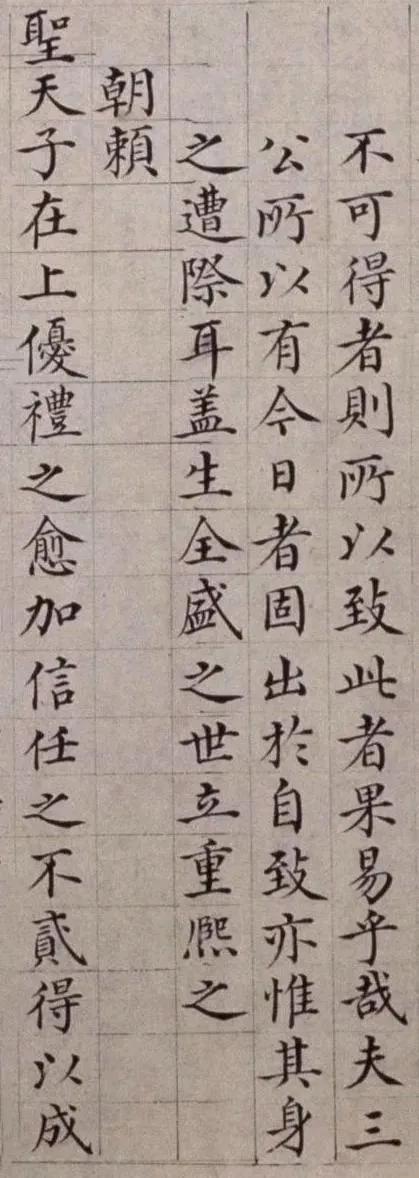 不可得者則所以致此者果易乎哉夫三
公所以有今日者固出於自致亦惟其身
之遭際耳盖生全盛之世立重熈之
朝頼
聖天子在上優禮之愈加信任之不貳得以成